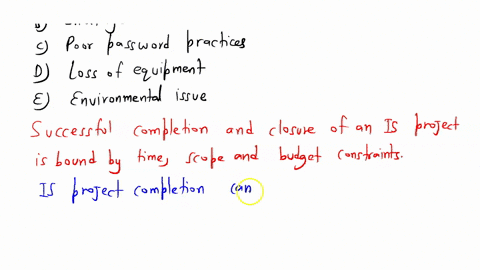 C) Poor password practices
D) Loss of equipment
E) Environmental issue
Successful completion and closure of an IS project
is bound by time, scope and budget constraints.
IS project completion can